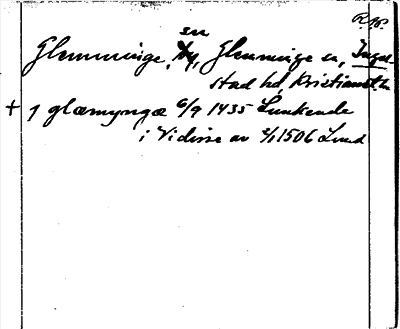 R. W.
sn
Glemminge, by, Glemminge sn, Ingel-
stad hd, Kristianst. l.
+ j glæmyngæ 6/9 1435 Lunkende
i Vidisse av 2/1 1506 Lund